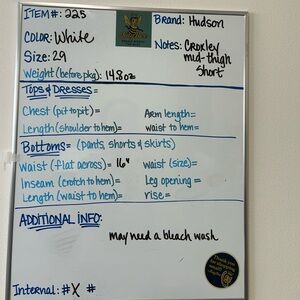 ITEM#: 225
Brand: Hudson
COLOR: White
Notes: Croxley mid-thigh short
Size: 29
Weight (before pkg): 14.8oz
TOPS & DRESSES=
Chest (pit to pit)=
Arm length=
Length (shoulder to hem)=
waist to hem=
Bottoms= (pants, shorts & skirts)
Waist (flat across)= 16"
waist (size)=
Inseam (crotch to hem)=
Leg opening=
Length (waist to hem)=
rise=
ADDITIONAL INFO:
may need a bleach wash
Thank you for shopping small!
Internal: #X #